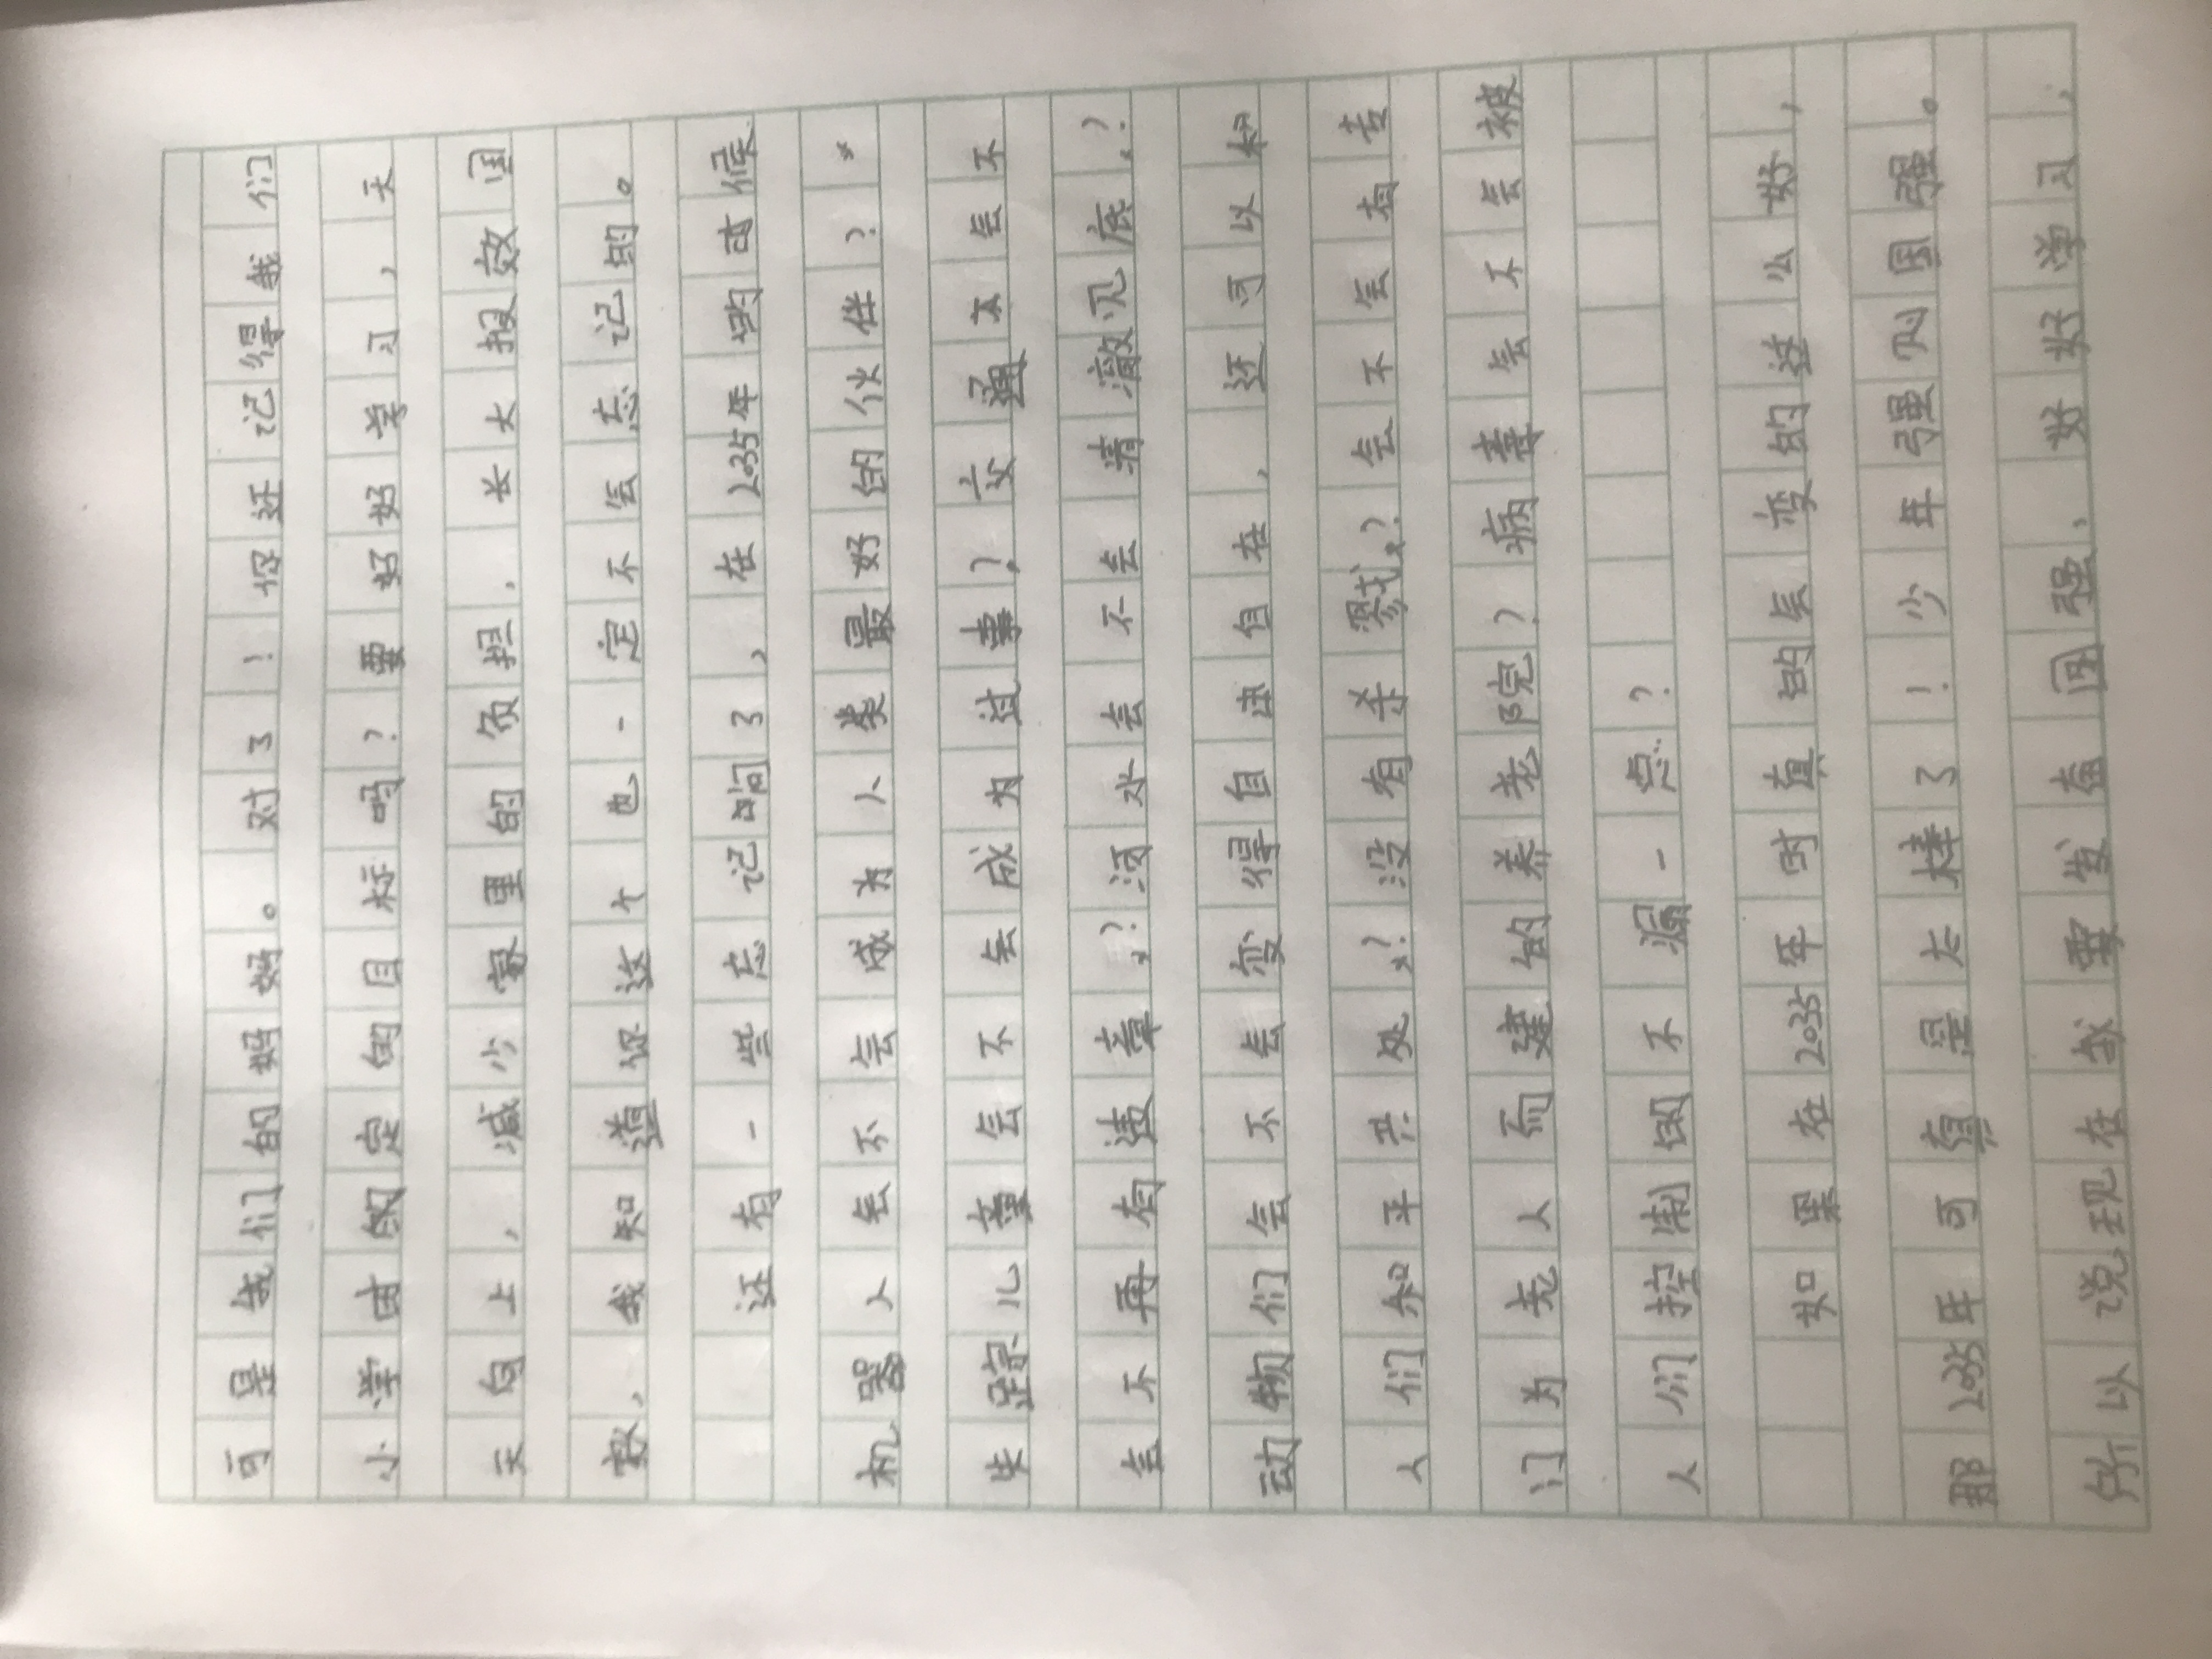 可是我们的妈妈。对了!你还记得我们
小学时的定的目标吗?要好好学习,天
天向上,减少家里的负担,长大报效国
家,我知道你这个也一定不会忘记的。
还有一些忘记问了,在2035年的时候
机器人会不会成为人类最好的伙伴?
失踪儿童会不会成为过事?交通会不
会不再有违章?河水会不会清澈见底?
动物们会不会变得自由自在,还可以和
人们和平共处?没有杀戮?会不会有专
门为老人而建的养老院?病毒会不会被
人们控制的不漏一点?
如果在2035年时真的会变的这么好,
那2035年可真是太棒了!少年强则国强。
所以说现在我要发奋图强,好好学习,